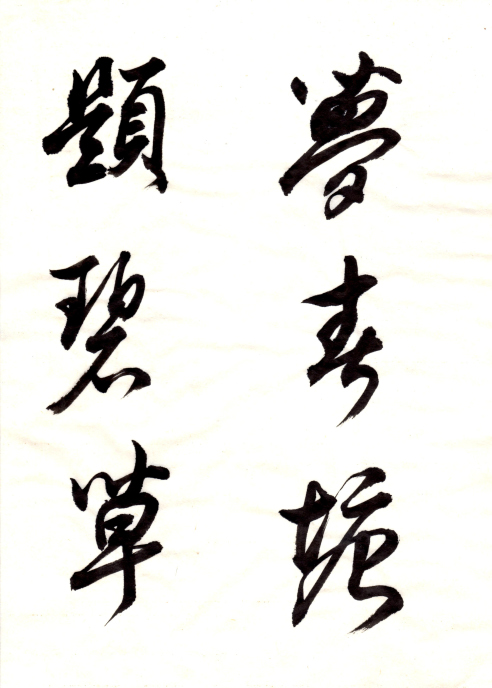 夢春塘
題碧草